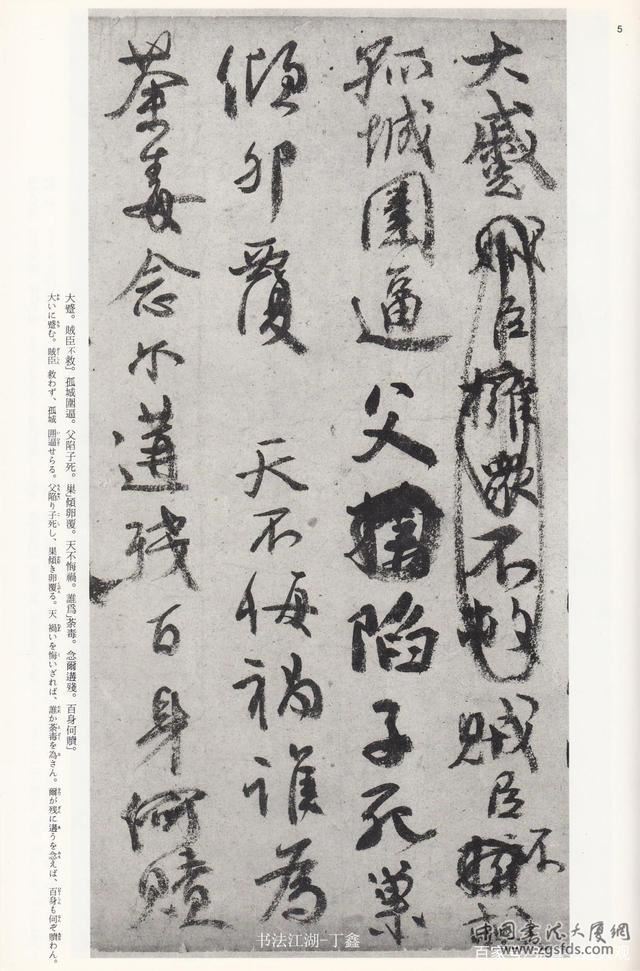 5
大蹙賊臣擁眾不救賊臣不
孤城圍逼父陷子死巢
傾卵覆 天不悔禍誰為
荼毒念爾遘殘百身何贖
大蹙。賊臣不救』孤城圍逼。父陷子死。巢』傾卵覆。天不悔禍。誰爲』荼毒。念爾遘殘。百身何贖』。
大いに蹙む。賊臣 救わず、孤城 囲逼せらる。父陥り子死し、巣傾き卵覆る。天 禍いを悔いざれば、誰か荼毒を為さん。爾が残に遘うを念えば、百身も何ぞ贖わん。
书法江湖-丁鑫
中國書法大厦網
www.zgsfds.com